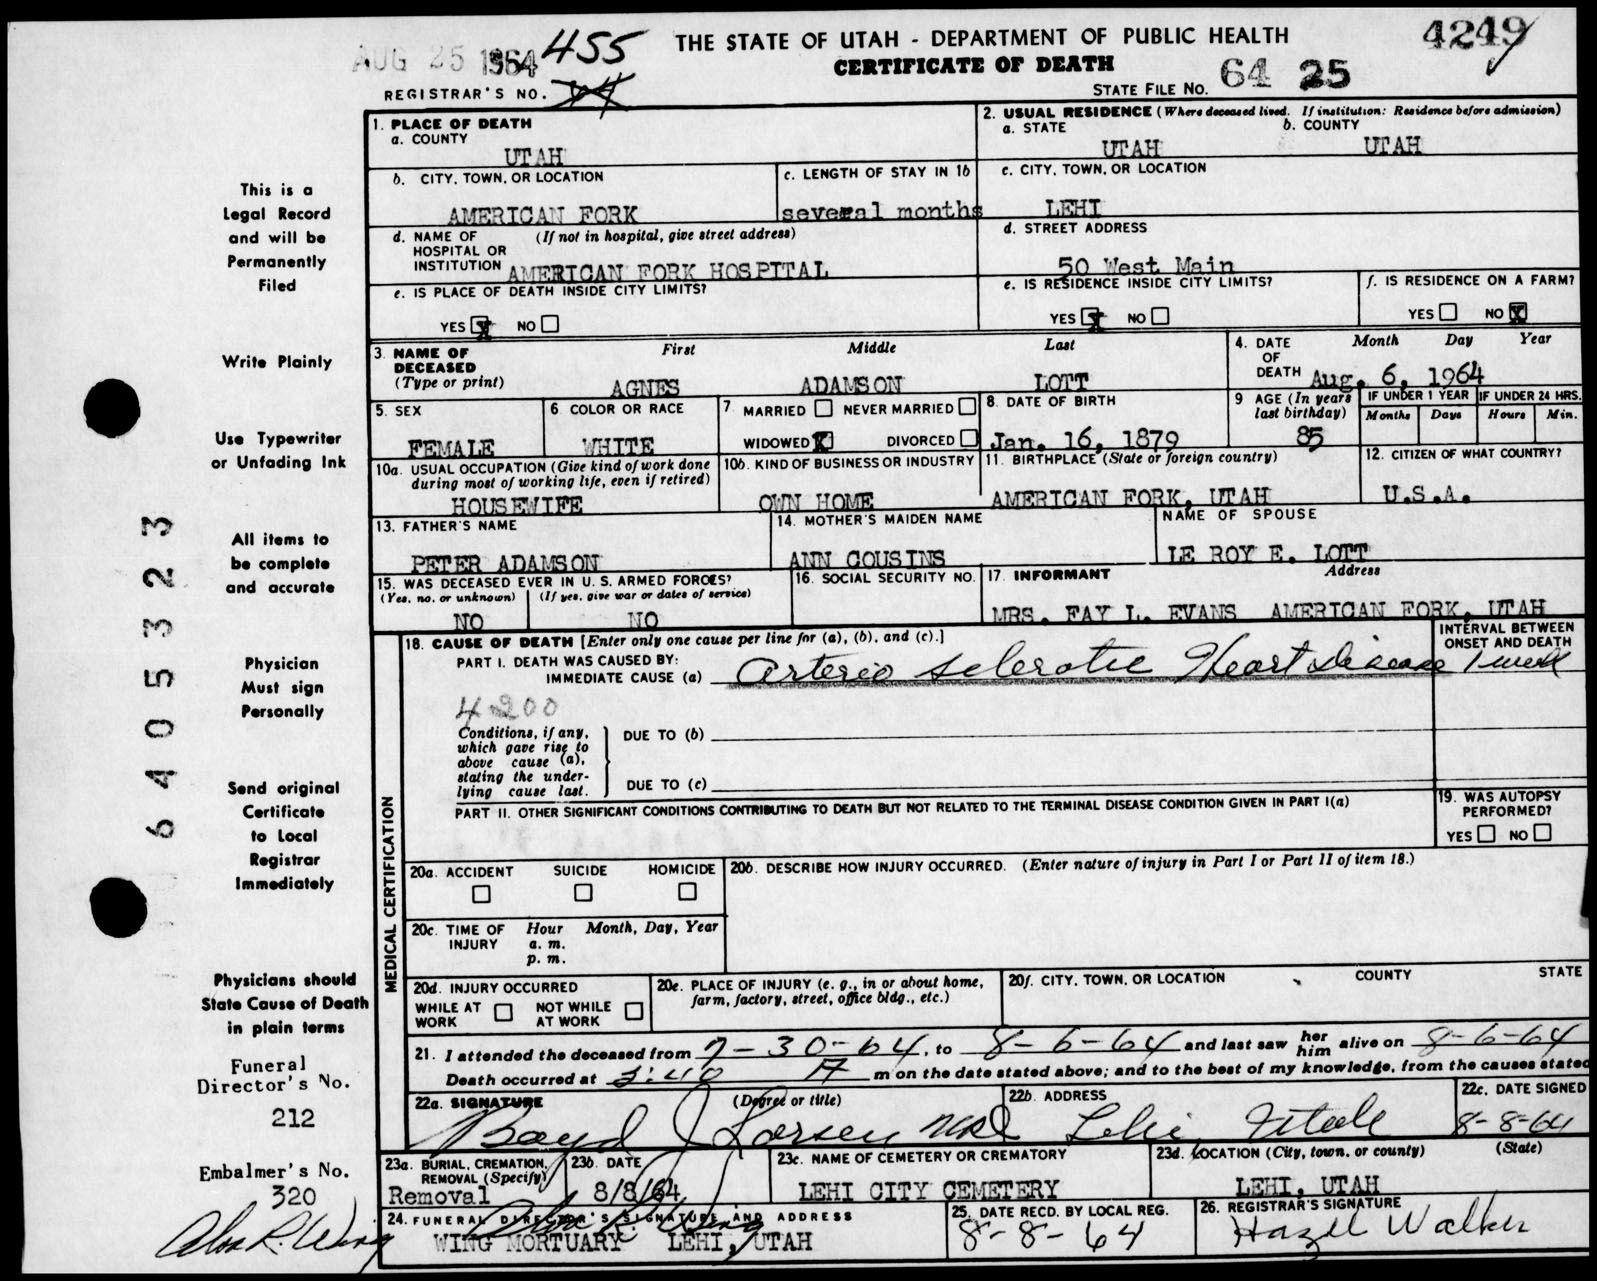 AUG 25 1964 455 THE STATE OF UTAH - DEPARTMENT OF PUBLIC HEALTH 4249
CERTIFICATE OF DEATH
REGISTRAR'S NO. STATE FILE NO. 64 25
This is a
Legal Record
and will be
Permanently
Filed
Write Plainly
Use Typewriter
or Unfading Ink
All items to
be complete
and accurate
Physician
Must sign
Personally
Send original
Certificate
to Local
Registrar
Immediately
Physicians should
State Cause of Death
in plain terms
Funeral
Director's No.
212
Embalmer's No.
320
Alva R. Wing
6405323
1. PLACE OF DEATH
a. COUNTY
UTAH
2. USUAL RESIDENCE (Where deceased lived. If institution: Residence before admission)
a. STATE b. COUNTY
UTAH UTAH
b. CITY, TOWN, OR LOCATION
AMERICAN FORK
c. LENGTH OF STAY IN 1b
several months
c. CITY, TOWN, OR LOCATION
LEHI
d. NAME OF (If not in hospital, give street address)
HOSPITAL OR
INSTITUTION AMERICAN FORK HOSPITAL
d. STREET ADDRESS
50 West Main
e. IS PLACE OF DEATH INSIDE CITY LIMITS?
YES X NO
e. IS RESIDENCE INSIDE CITY LIMITS?
YES X NO
f. IS RESIDENCE ON A FARM?
YES NO X
3. NAME OF First Middle Last
DECEASED
(Type or print) AGNES ADAMSON LOTT
4. DATE Month Day Year
OF
DEATH Aug. 6, 1964
5. SEX
FEMALE
6. COLOR OR RACE
WHITE
7. MARRIED NEVER MARRIED
WIDOWED X DIVORCED
8. DATE OF BIRTH
Jan. 16, 1879
9 AGE (In years
last birthday)
85
IF UNDER 1 YEAR IF UNDER 24 HRS.
Months Days Hours Min.
10a. USUAL OCCUPATION (Give kind of work done
during most of working life, even if retired)
HOUSEWIFE
10b. KIND OF BUSINESS OR INDUSTRY
OWN HOME
11. BIRTHPLACE (State or foreign country)
AMERICAN FORK, UTAH
12. CITIZEN OF WHAT COUNTRY?
U.S.A.
13. FATHER'S NAME
PETER ADAMSON
14. MOTHER'S MAIDEN NAME
ANN COUSINS
NAME OF SPOUSE
LE ROY E. LOTT
15. WAS DECEASED EVER IN U. S. ARMED FORCES?
(Yes, no, or unknown) (If yes, give war or dates of service)
NO NO
16. SOCIAL SECURITY NO.
17. INFORMANT Address
MRS. FAY L. EVANS AMERICAN FORK, UTAH
MEDICAL CERTIFICATION
18. CAUSE OF DEATH [Enter only one cause per line for (a), (b), and (c).]
INTERVAL BETWEEN
ONSET AND DEATH
PART I. DEATH WAS CAUSED BY:
IMMEDIATE CAUSE (a) Arterio Sclerotic Heart Disease 1 week
4200
Conditions, if any,
which gave rise to
above cause (a),
stating the under-
lying cause last.
DUE TO (b)
DUE TO (c)
PART II. OTHER SIGNIFICANT CONDITIONS CONTRIBUTING TO DEATH BUT NOT RELATED TO THE TERMINAL DISEASE CONDITION GIVEN IN PART I(a)
19. WAS AUTOPSY
PERFORMED?
YES NO
20a. ACCIDENT SUICIDE HOMICIDE
20b. DESCRIBE HOW INJURY OCCURRED. (Enter nature of injury in Part I or Part II of item 18.)
20c. TIME OF Hour Month, Day, Year
INJURY a. m.
p. m.
20d. INJURY OCCURRED
WHILE AT NOT WHILE
WORK AT WORK
20e. PLACE OF INJURY (e. g., in or about home,
farm, factory, street, office bldg., etc.)
20f. CITY, TOWN, OR LOCATION COUNTY STATE
21. I attended the deceased from 7-30-64, to 8-6-64 and last saw her him alive on 8-6-64
Death occurred at :40 A m on the date stated above; and to the best of my knowledge, from the causes stated
22a. SIGNATURE (Degree or title)
Boyd J Larsen MD
22b. ADDRESS
Lehi, Utah
22c. DATE SIGNED
8-8-64
23a. BURIAL, CREMATION,
REMOVAL (Specify)
Removal
23b. DATE
8/8/64
23c. NAME OF CEMETERY OR CREMATORY
LEHI CITY CEMETERY
23d. LOCATION (City, town, or county) (State)
LEHI, UTAH
24. FUNERAL DIRECTOR'S SIGNATURE AND ADDRESS
Alva R. Wing
WING MORTUARY LEHI, UTAH
25. DATE RECD. BY LOCAL REG.
8-8-64
26. REGISTRAR'S SIGNATURE
Hazel Walker